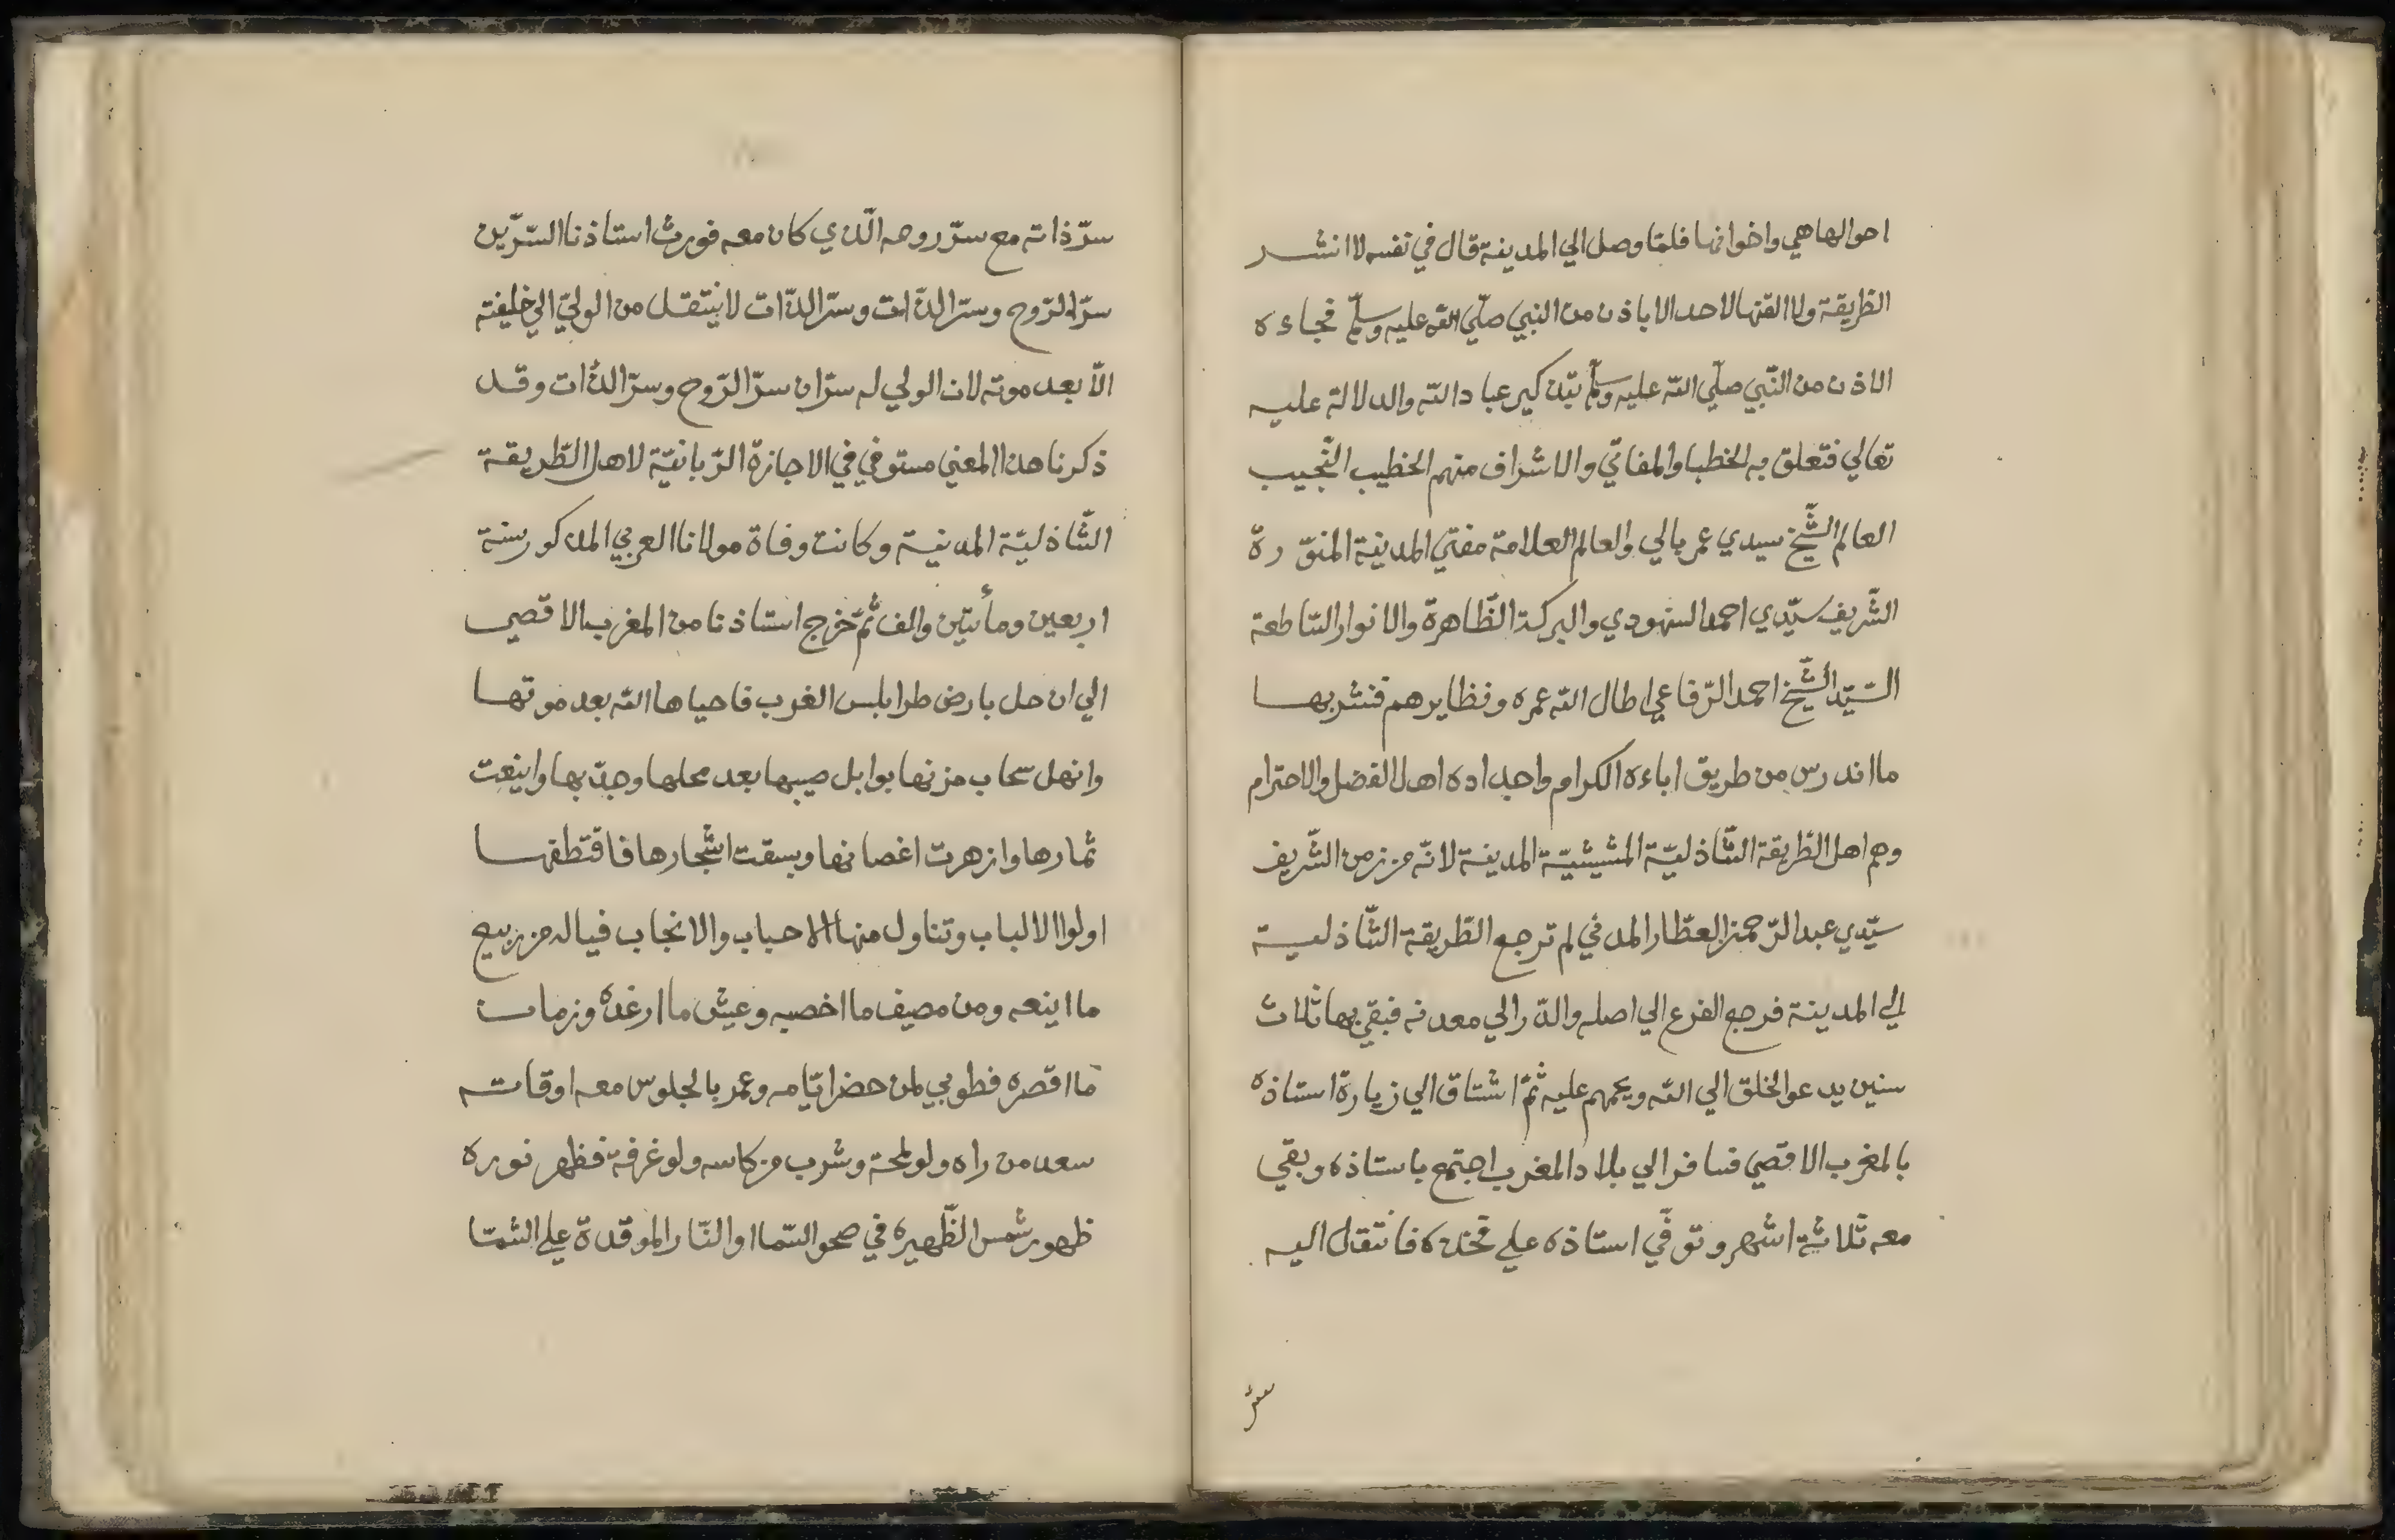 احوالها هي واخوانها فلمّا وصل الي المدينة قال في نفسه لا انشر
الطريقة ولا القنها لاحد الا باذن من النبي صلّي اللّه عليه وسلّم فجاءه
الاذن من النّبي صلّي اللّه عليه وسلّم بتذكير عباد اللّه والدلالة عليه
تعالي فتعلق به الخطبا والمفاتي والاشراف منهم الخطيب النّجيب
العالم الشّيخ سيدي عمر بالي والعالم العلامة مفتي المدينة المنوّرة
الشّريف سيّدي احمد السنهودي والبركة الظّاهرة والانوار السّاطعة
السّيّد الشّيخ احمد الرّفاعي اطال اللّه عمره ونظايرهم فنشر بها
ما اندرس من طريق اباءه الكرام واجداده اهل الفضل والاحترام
وهم اهل الطّريقة الشّاذليّة المشيشيّة المدينة لانّه من زمن الشّريف
سيّدي عبد الرّحمن العطّار المدني لم ترجع الطّريقة الشّاذلية
الي المدينة فرجع الفرع الي اصله والدّر الي معدنه فبقي بها ثلاث
سنين يدعو الخلق الي اللّه ويجمهم عليه ثمّ اشتاق الي زيارة استاذه
بالمغرب الاقصي فسافر الي بلاد المغرب اجتمع باستاذه وبقي
معه ثلاثة اشهر وتوفّي استاذه علي فخذه فانتقل اليه
سرّ
سرّ ذاته مع سرّ روحه الّذي كان معه فورث استاذنا السّرّين
سرّ الرّوح وسرّ الذّات وسرّ الذّات لا ينتقل من الوليّ الي خليفته
الّا بعد موته لان الولي له سرّان سرّ الرّوح وسرّ الذّات وقد
ذكرنا هذا المعني مستوفي في الاجازة الرّبانيّة لاهل الطّريقة
الشّاذليّة المدنية وكانت وفاة مولانا العربي المذكور سنة
اربعين ومأتين والف ثمّ خرج استاذنا من المغرب الاقصي
الي ان حل بارض طرابلس الغرب فاحياها اللّه بعد موتها
وانهل سحاب مزنها بوابل صيبها بعد محلها وجدبها واينعت
ثمارها وازهرت اغصانها وبسقت اشجارها فاقتطفها
اولوا الالباب وتناول منها الاحباب والانجاب فياله من ربيع
ما اينعه ومن مصيف ما اخصبه وعيش ما ارغده وزمان
ما اقصره فطوبي لمن حضر ايّامه وعمر بالجلوس معه اوقاته
سعد من راه ولو لمحة وشرب من كاسه ولو غرفة فظهر نوره
ظهور شمس الظّهيره في صحو السّما او النّار الموقدة علي الشمّا